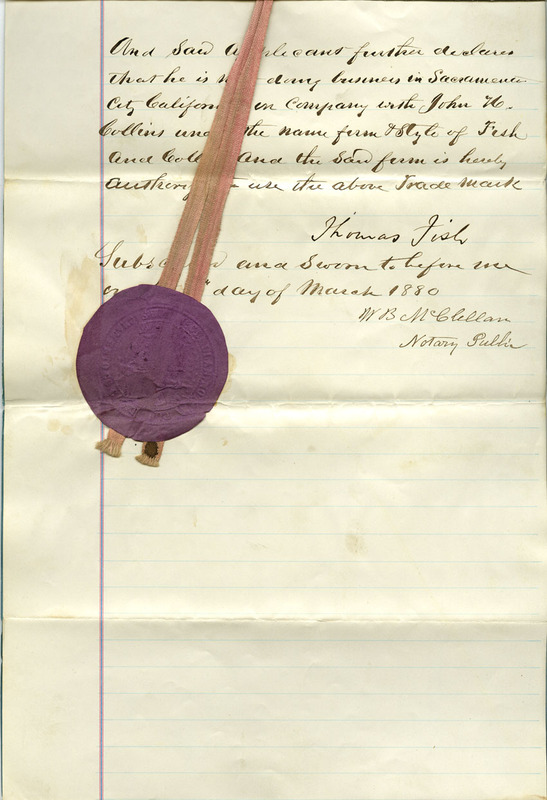 And Said Applicant further declares
that he is doing business in Sacramento
City California in Company with John H.
Collins under the name firm & Style of Fish
And Coll And the Said firm is hereby
Authorized to use the above Trade Mark
Thomas Fish
Subscribed and Sworn to before me
on day of March 1880
W B McClellan
Notary Public